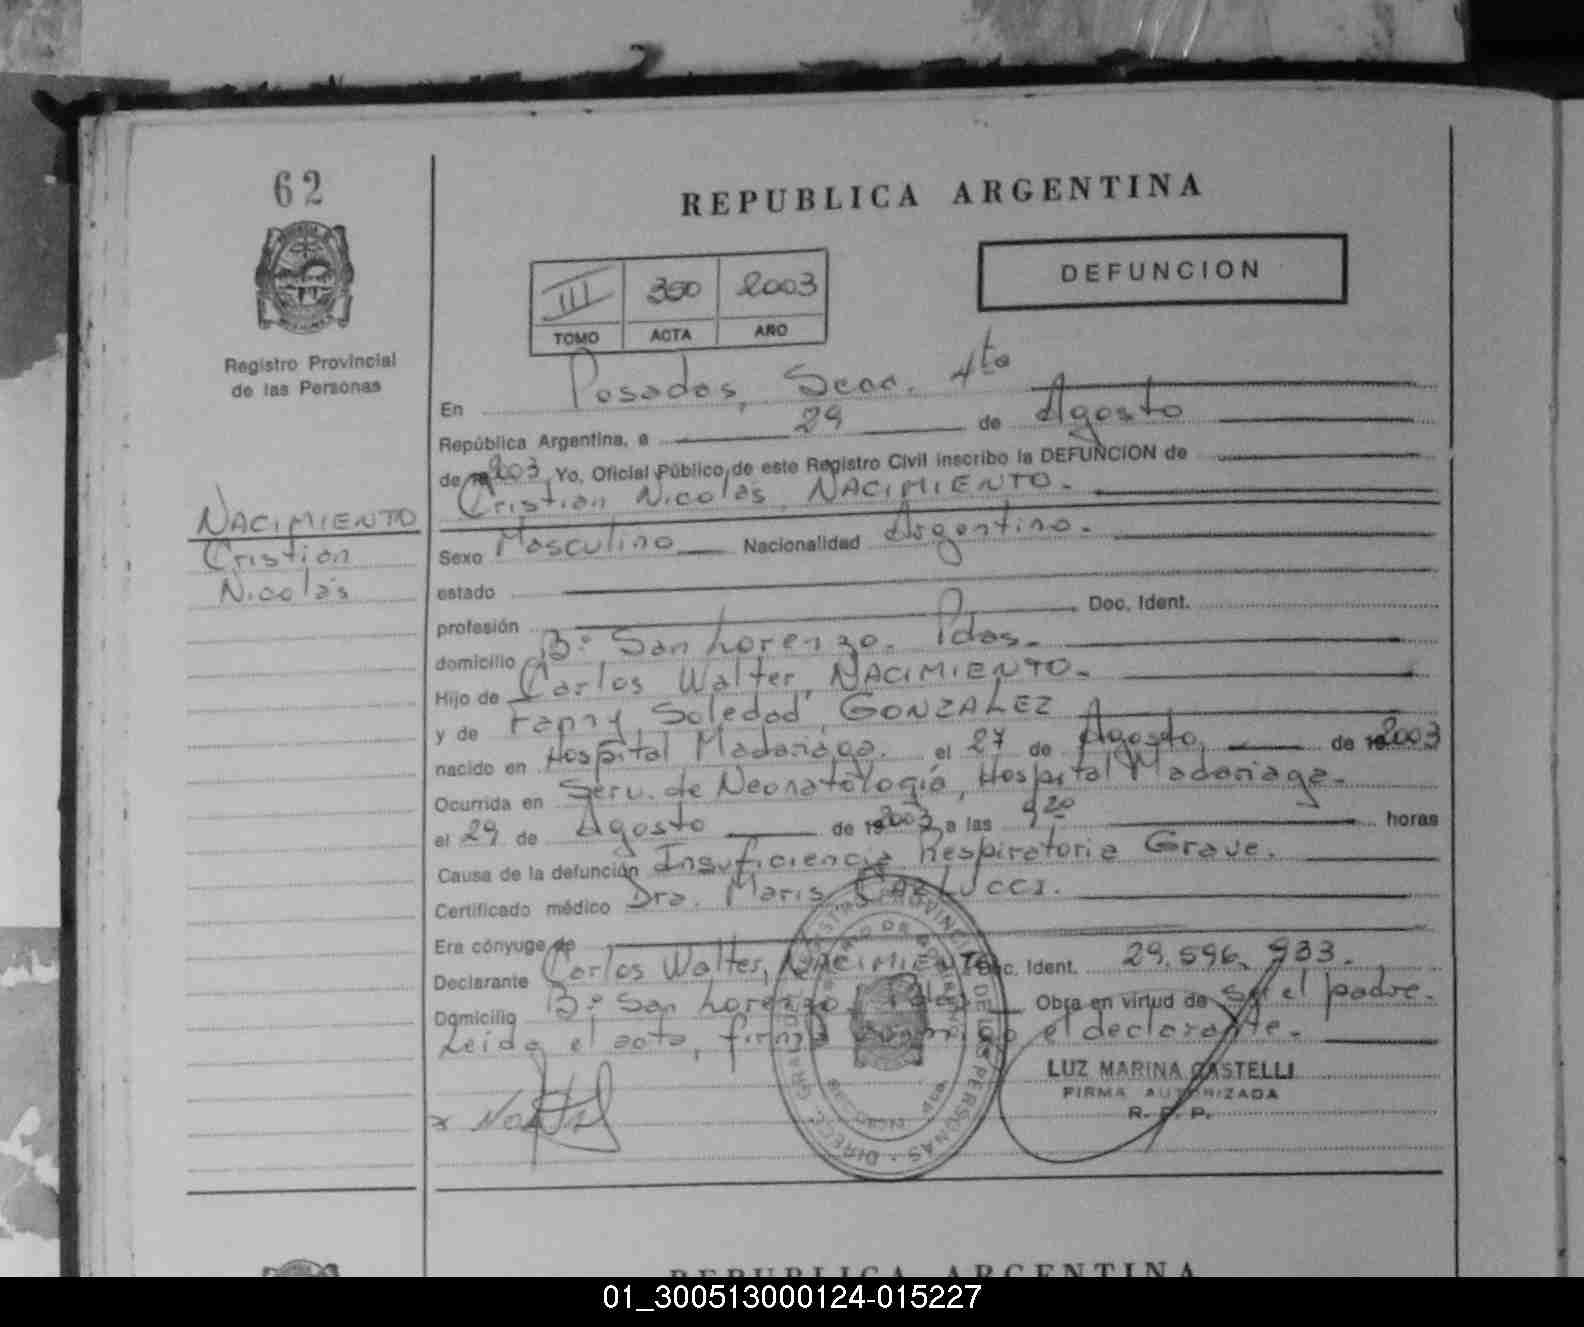 62
REPUBLICA ARGENTINA
DEFUNCION
III 350 2003
TOMO ACTA AÑO
Registro Provincial
de las Personas
En Posadas, Secc. 4ta
República Argentina, a 29 de Agosto
de 2003 Yo, Oficial Público de este Registro Civil inscribo la DEFUNCION de
Cristian Nicolás NACIMIENTO.
NACIMIENTO
Cristian
Nicolás
Sexo Masculino Nacionalidad Argentina.
estado
profesión Doc. Ident.
domicilio B° San Lorenzo. Pdas.
Hijo de Carlos Walter, NACIMIENTO.
y de Fanny Soledad, GONZALEZ
nacido en Hospital Madariaga. el 27 de Agosto, de 2003
Ocurrida en Serv. de Neonatología, Hospital Madariaga.
el 29 de Agosto de 2003, a las 9 20 horas
Causa de la defunción Insuficiencia Respiratoria Grave.
Certificado médico Dra. Maris
Era cónyuge de
Declarante Carlos Walter, NACIMIENTO Doc. Ident. 29.596.933.
Domicilio B° San Lorenzo. Pdas. Obra en virtud de ser el padre.
Leida el acta, firma conmigo el declarante.
LUZ MARINA CASTELLI
FIRMA AUTORIZADA
R. P. P.
REPUBLICA ARGENTINA
01_300513000124-015227